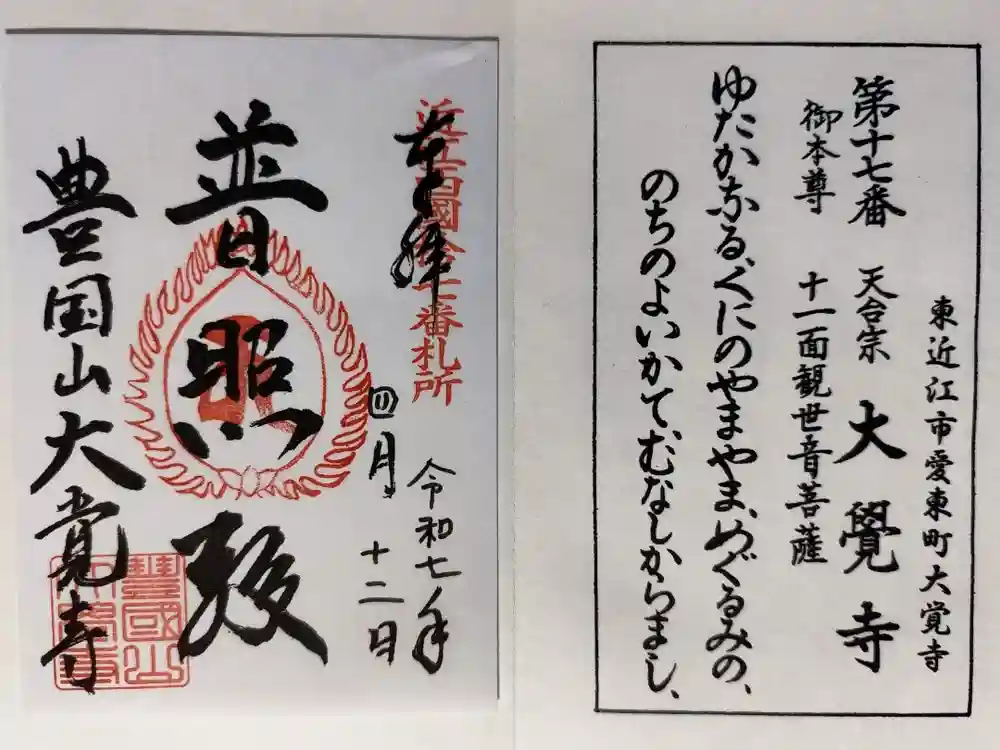 東近江市愛東町大覚寺
第十七番 天台宗 大覺寺
御本尊 十一面観世音菩薩
ゆたかなる、くにのやまやま、めぐるみの、
のちのよいかでむなしからまし、
近江西國拾七番札所
奉拝
令和七年
四月
十二日
普照殿
豊国山大覚寺
豐國山
大覺寺